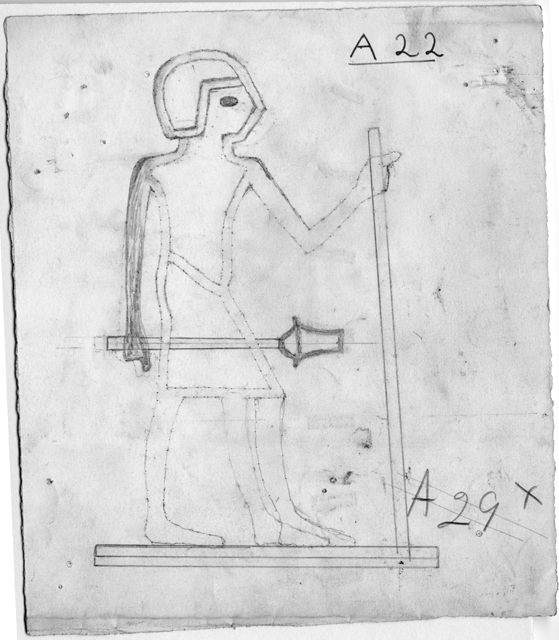 A 22
A 29 x